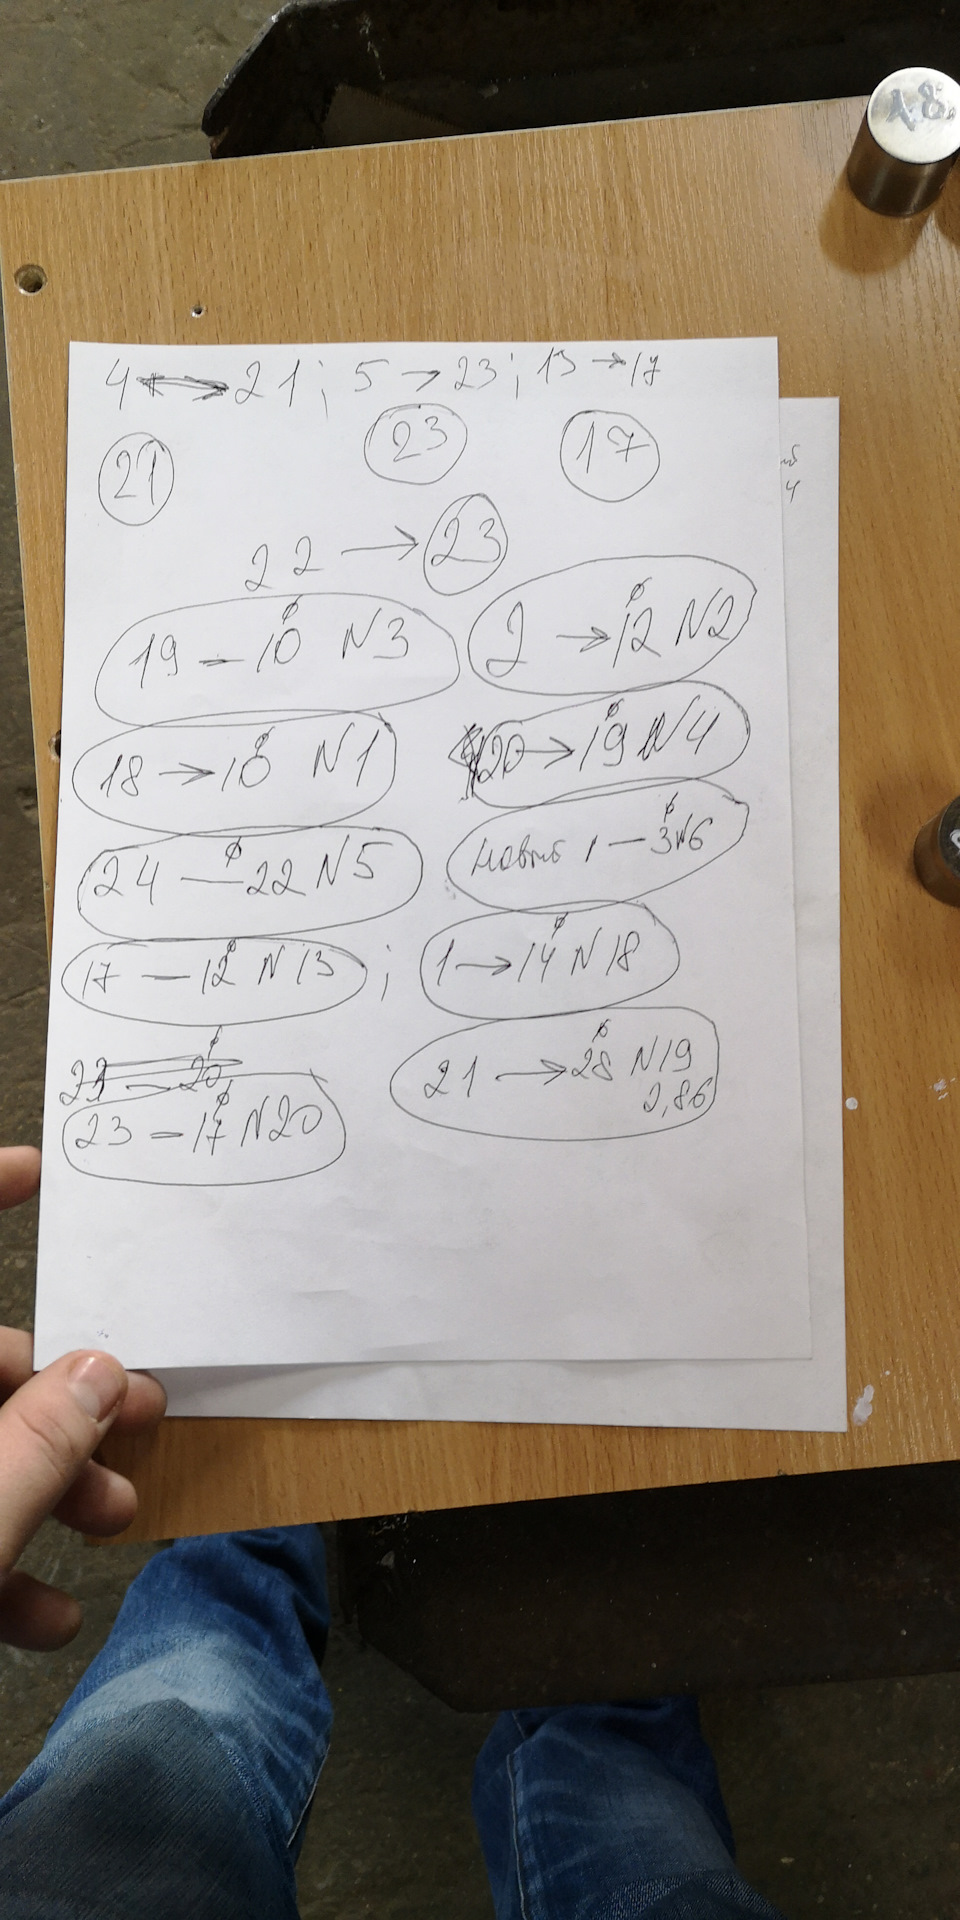 4 → 21; 5 → 23; 13 → 17
21 23 17
22 → 23
19 – 10 N3
2 → 12 N2
18 → 10 N1
20 → 19 N4
24 – 22 N5
новый 1 – 3 N6
17 – 12 N13 ;
1 → 14 N18
21 → 28 N19
2,86
23 – 17 N20